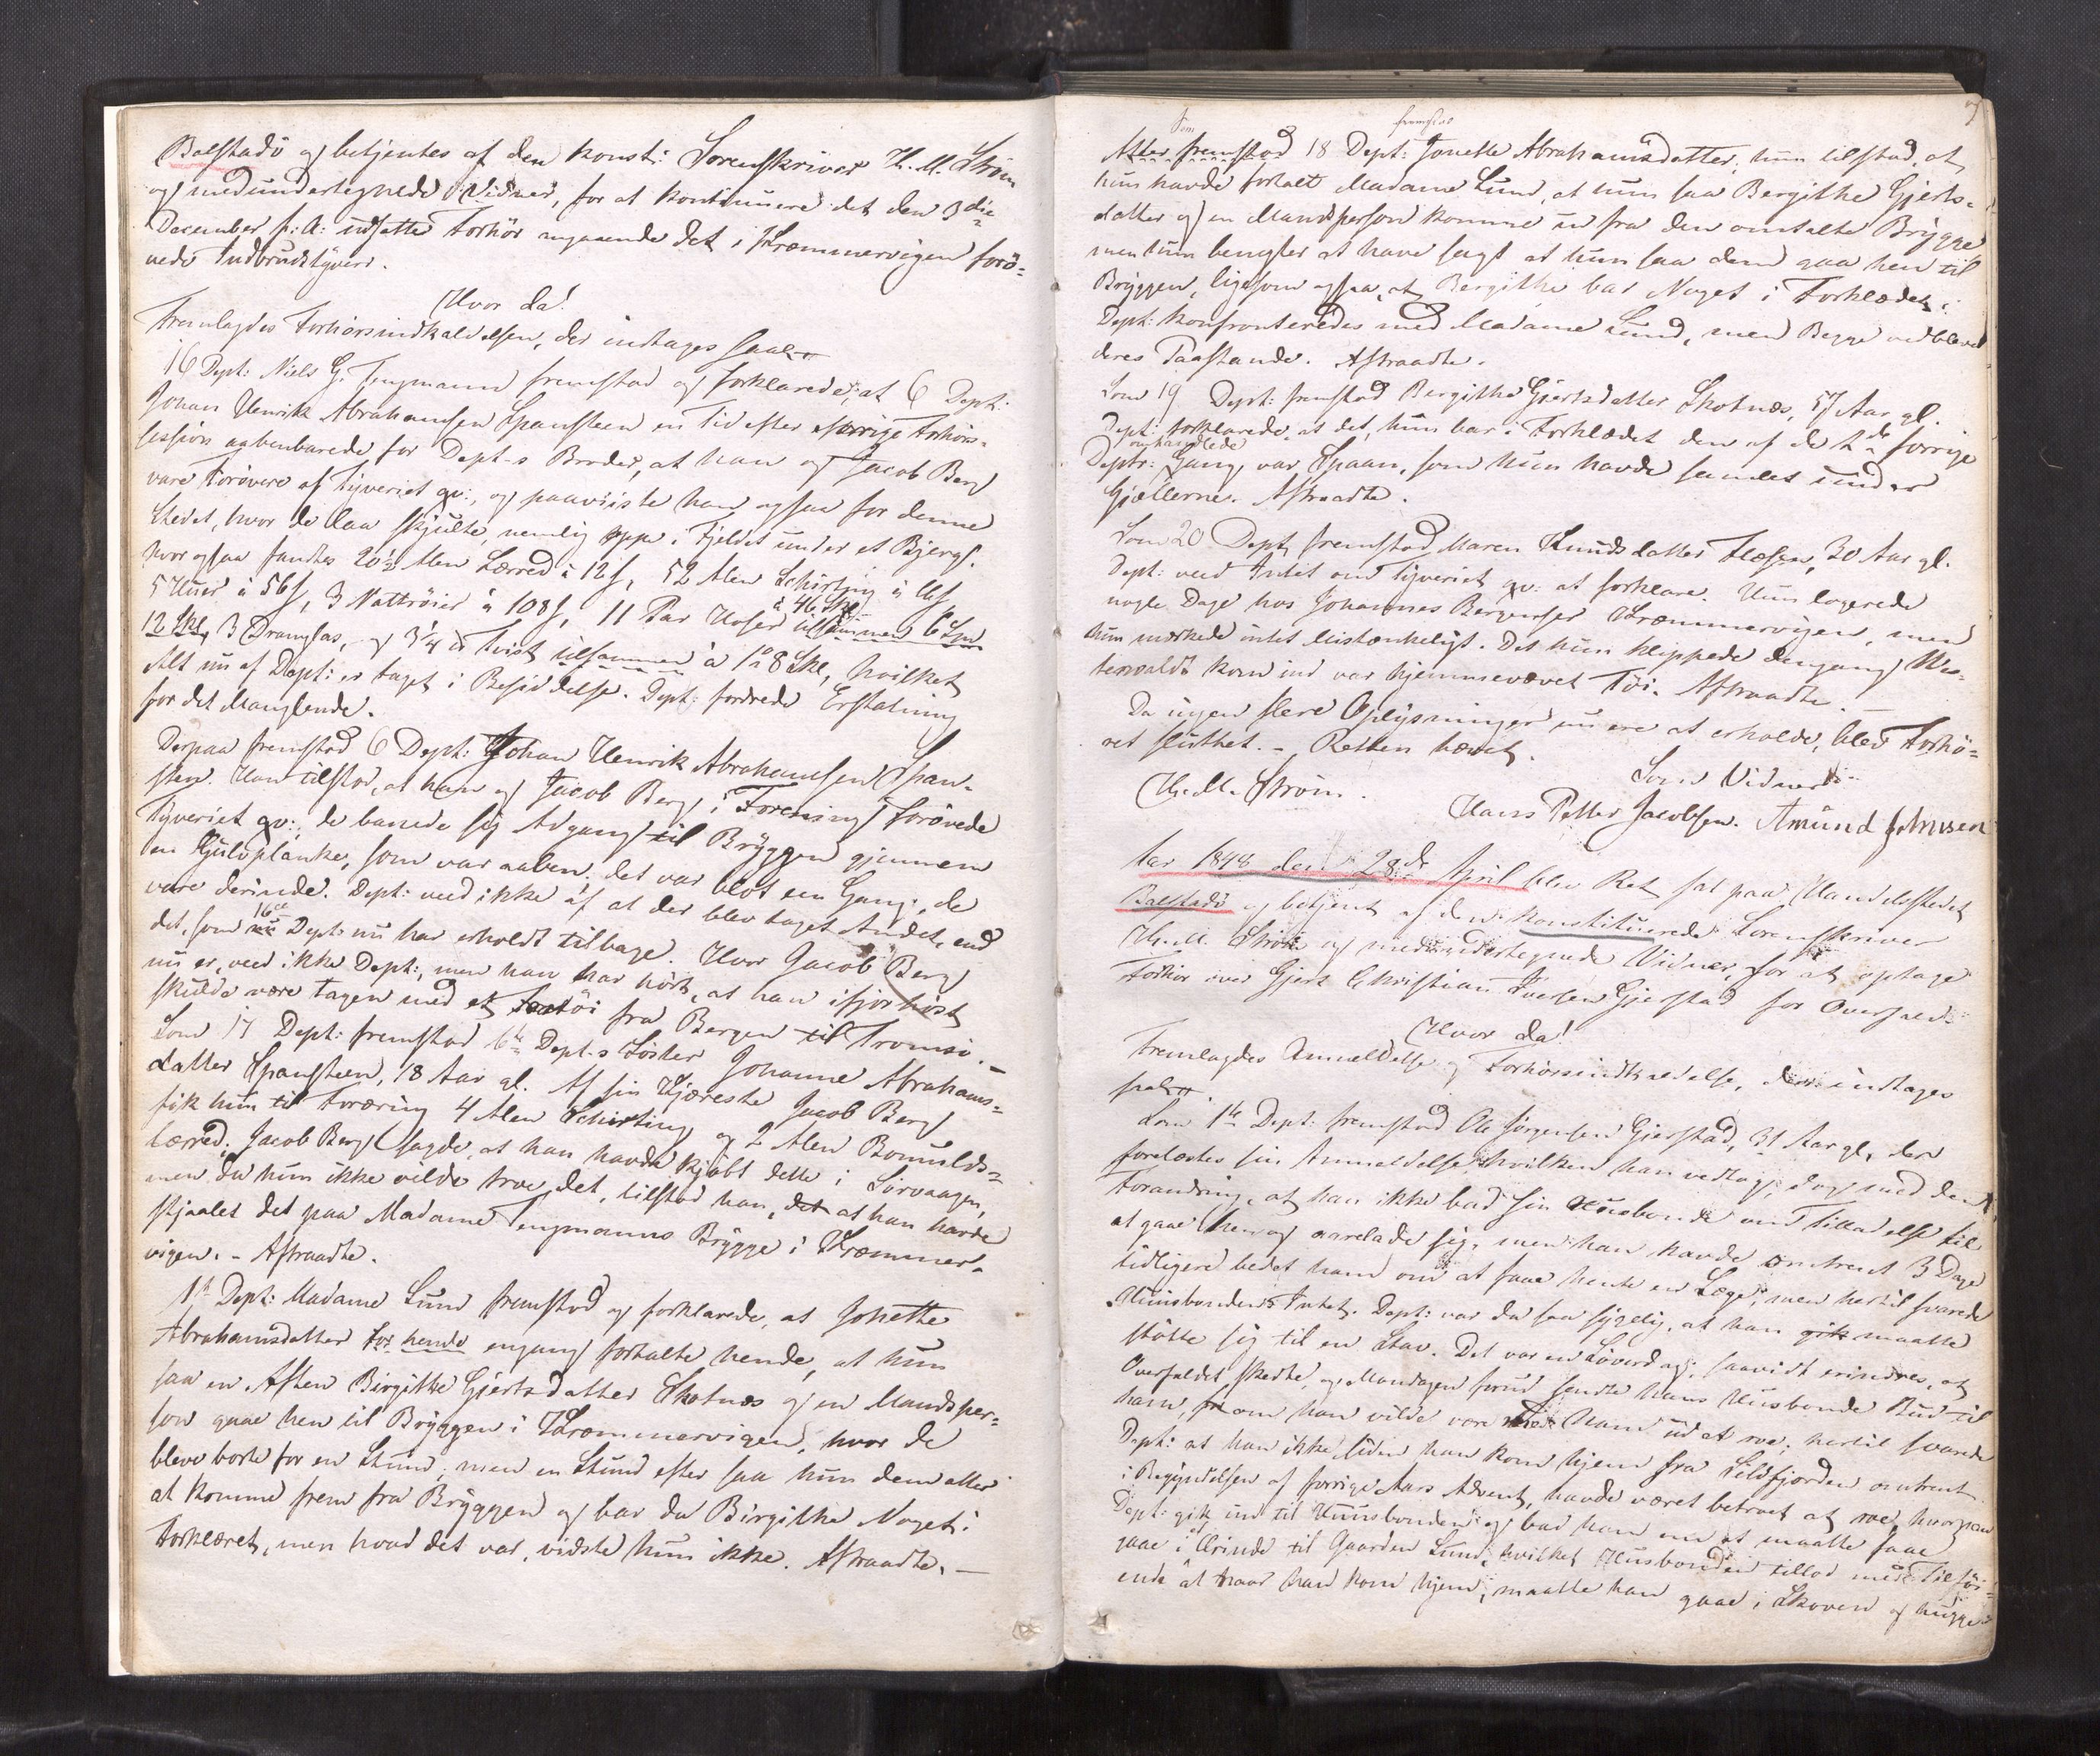 Balstadö og betjentes af den konst: Sorenskriver H. M. Ström
og medundertegnede Vidner, for at kontinuere det den 3die
December f: A: udsatte Forhör angaaende det i Kræmmervigen forö=
vede Indbrudstyveri.
Hvor da!
Fremlagdes Forhörsindkaldelsen, der indtages saal.
16 Dept: Niels G. Jengmann fremstod og forklarede, at 6 Dept:
Johan Henrik Abrahamsen Spansteen en Tid efter forrige Forhörs=
session aabenbarede for Dept-s Broder, at han og Jacob Berg
vare Forövere af Tyveriet qv:, og paaviiste han ogsaa for denne
Stedet, hvor de laa skjulte, nemlig oppe i Fjeldet under et Bjerg.
hvor ogsaa fandtes 20½ Alen Lærred à 12 s, 52 Alen Schirting à
5 Huer à 56 s, 3 Nattröier à 108 s, 11 Par Hoser à 46 Skl tilsammen 6 Spd
12 Skl, 3 Dramglas, og 3¼ Tvist tilsammen à 1 8 Skl, hvilket
Alt nu af Dept: er taget i Besiddelse. Dept: fordrede Erstatning
for det Manglende.
Derpaa fremstod 6 Dept: Johan Henrik Abrahamsen Span-
steen. Han tilstod, at han og Jacob Berg i Forening forövede
Tyveriet qv:, de banede sig Adgang til Bryggen gjennem
en Gulvplanke, som var aaben; det var blot en Gang, de
vare derinde. Dept: veed ikke af at der blev taget Andet, end
det, som 16de Dept: nu har erholdt tilbage. Hvor Jacob Berg
nu er, veed ikke Dept:, men han har hört, at han ifjor höst
skulde være tagen med et Fartöi fra Bergen til Tromsö. –
Som 17 Dept: fremstod 6te Dept-s Söster Johanne Abrahams=
datter Spansteen, 18 Aar gl. Af sin Kjæreste Jacob Berg
fik hun til Foræring 4 Alen Schirting og 2 Alen Bomulds=
lærred; Jacob Berg sagde, at han havde kjöbt dette i Sörvaagen,
men da hun ikke vilde troe det, tilstod han, det at han havde
stjaalet det paa Madame Jengmanns Brygge i Kræmmer-
vigen. – Aftraadte.
1te Dept: Madame Lund fremstod og forklarede, at Jonette
Abrahamsdatter for hende engang fortalte hende, at hun
saa en Aften Birgithe Gjertsdatter Skotnæs og en Mandsper=
son gaae hen til Bryggen i Kræmmervigen, hvor de
bleve borte for en Stund; men en Stund efter saa hun dem atter
at komme frem fra Bryggen og bar da Birgithe Noget i
Forklæet, men hvad det var, vidste hun ikke. Aftraadte. –
Som fremstod
Atter fremstod 18 Dept: Jonette Abrahamsdatter; hun tilstod, at
hun havde fortalt Madame Lund, at hun saa Bergithe Gjerts-
datter og en Mandsperson komme ud fra den omtalte Brygge
men hun benegter at have sagt at hun saa dem gaa hen til
Bryggen, ligesom ogsaa, at Bergithe bar Noget i Forklædet.
Dept: konfronteredes med Madame Lund, men Begge vedbleve
deres Paastande. Aftraadte.
Som 19 Dept: fremstod Bergithe Gjertsdatter Skotnæs, 57 Aar gl.
Dept: forklarede at det, hun bar i Forklædet den af de 2de forrige
Deptr: omhandlede Gang, var Spaan, som hun havde samlet under
Gjællerne. Aftraadte.
Som 20 Dept fremstod Maren Knudsdatter Flæsen, 30 Aar gl.
Dept: veed Intet om Tyveriet qv: at forklare. Hun logerede
nogle Dage hos Johannes Bergersen Kræmmervigen, men
hun mærkede intet Mistænkeligt. Det hun klippede dengang We-
terwaldt kom ind var hjemmevævet Töi. Aftraadte. –
Da ingen flere Oplysninger nu ere at erholde, blev Forhö=
ret sluttet. – Retten hævet.
H. M. Ström.
Som Vidner:
Hans Petter Jacobsen. Amund Johnsen
Aar 1848 den 28de April blev Ret sat paa Handelsstedet
Balstadö og betjent af den konstituerede Sorenskriver
H. M. Ström og medundertegnede Vidner, for at optage
Forhör over Gjert Christian Iversen Gjerstad for Overfald.
Hvor da!
Fremlagdes Anmeldelse og Forhörsindkaldelse, der indtages
saal.
Som 1te Dept: fremstod Ole Jörgensen Gjerstad, 31 Aar gl, der
forelæstes sin Anmeldelse hvilken han vedtog, dog med den
Forandring, at han ikke bad sin Huusbonde om Tilladelse til
at gaae hen og aarelade sig, men han havde omtrent 3 Dage
tidligere bedet ham om at faae hente en Læge; men hertil svarede
Huusbonden Intet. Dept: var da saa sygelig, at han gik maatte
stötte sig til en Stav. Det var en Löverdag, saavidt erindres, at
Overfaldet skedte, og Mandagen forud sendte hans Huusbonde Bud til
ham, om han vilde være med ham ud at roe; hertil svarede
Dept: at han ikke siden han kom hjem fra Sildfjorden omtrent
i Begyndelsen af forrige Aars Advent, havde været betroet at roe, hvorpaa
Dept: gik ind til Huusbonden og bad ham om at maatte faae
gaae i et Ærinde til Gaarden Lund, hvilket Huusbonden tillod med Tilföi=
ende at naar han kom hjem, maatte han gaae i Skoven og hugge